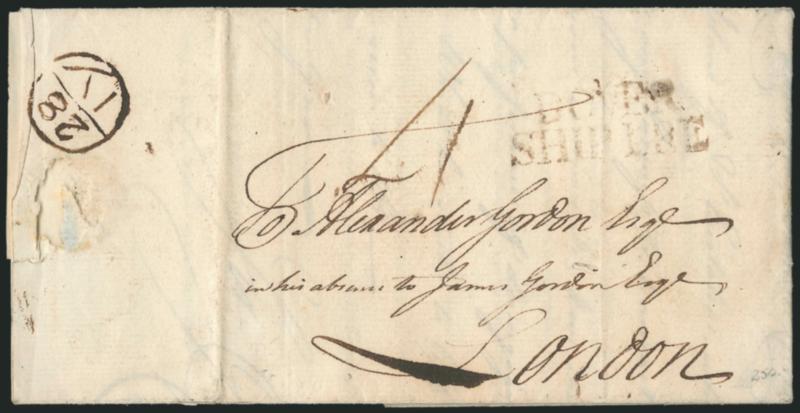 DOVER
SHIP LRE
To Alexander Gordon Esqr
in his absence to James Gordon Esqr
London
28